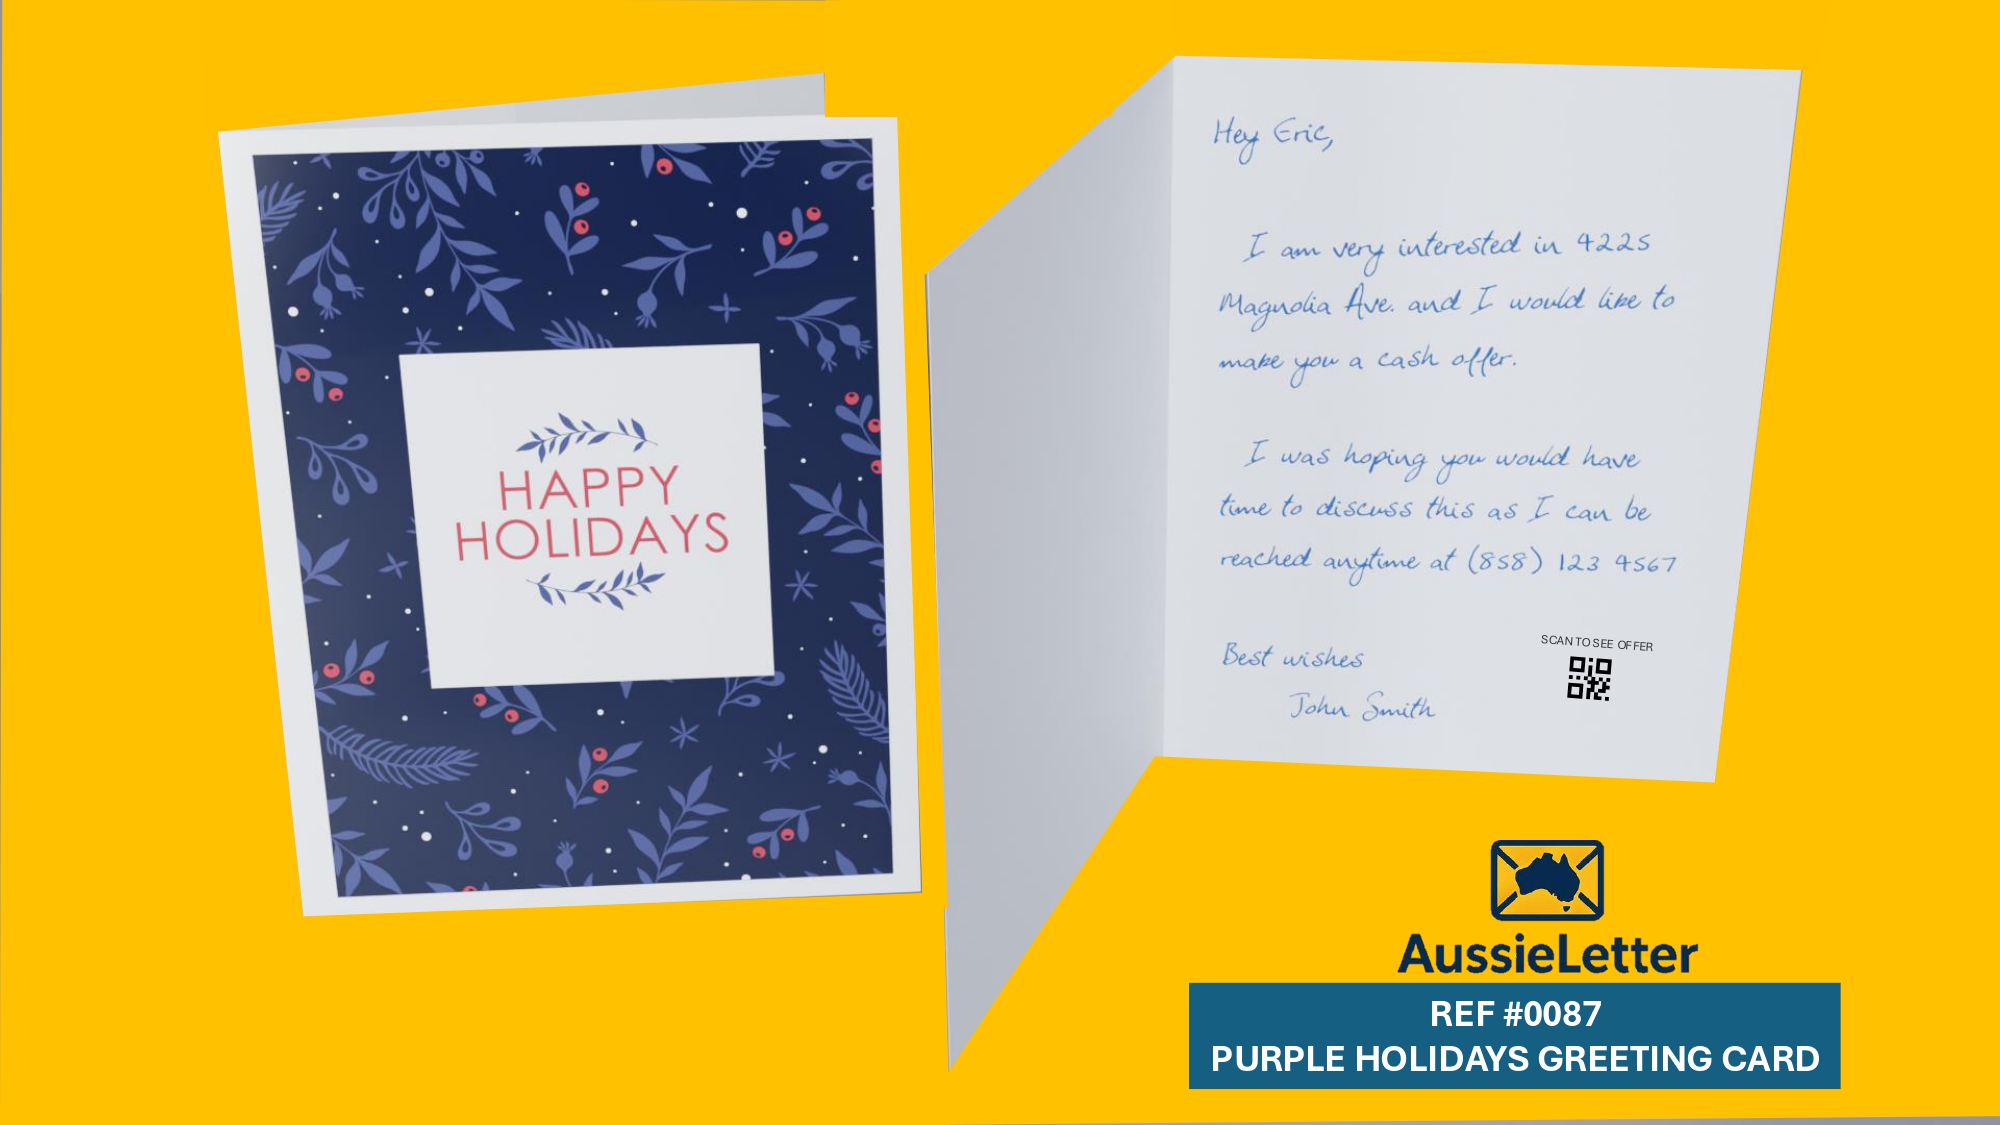 HAPPY
HOLIDAYS
Hey Eric,
I am very interested in 4225
Magnolia Ave. and I would like to
make you a cash offer.
I was hoping you would have
time to discuss this as I can be
reached anytime at (858) 123 4567
Best wishes
John Smith
SCAN TO SEE OFFER
AussieLetter
REF #0087
PURPLE HOLIDAYS GREETING CARD